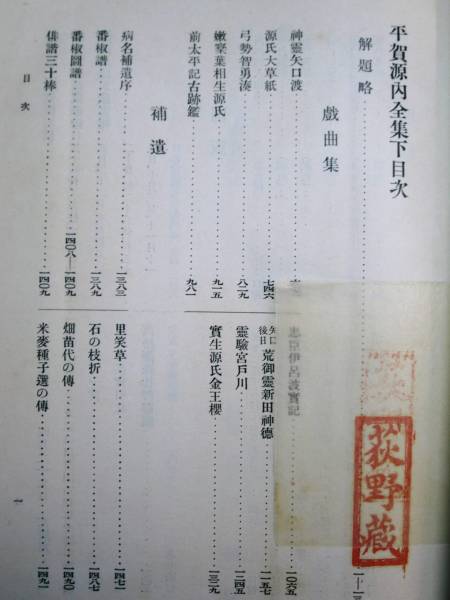 平賀源內全集下目次
解題略
戲曲集
神靈矢口渡
源氏大草紙 七四六
弓勢智勇湊 八二九
嫩𣜜葉相生源氏 九一五
前太平記古跡鑑 九八一
忠臣伊呂波實記 一〇六五
矢口後日 荒御靈新田神德 一一五七
靈驗宮戶川 一二四五
實生源氏金王櫻 一三二九
補遺
病名補遺序 一三八三
番椒譜 一三八九
番椒圖譜 一四〇八―一四〇九
俳諧三十棒 一四〇九
里笑草 一四七一
石の枝折 一四八七
畑苗代の傳 一四九〇
米麥種子選の傳 一四九一
目次
一
荻野藏